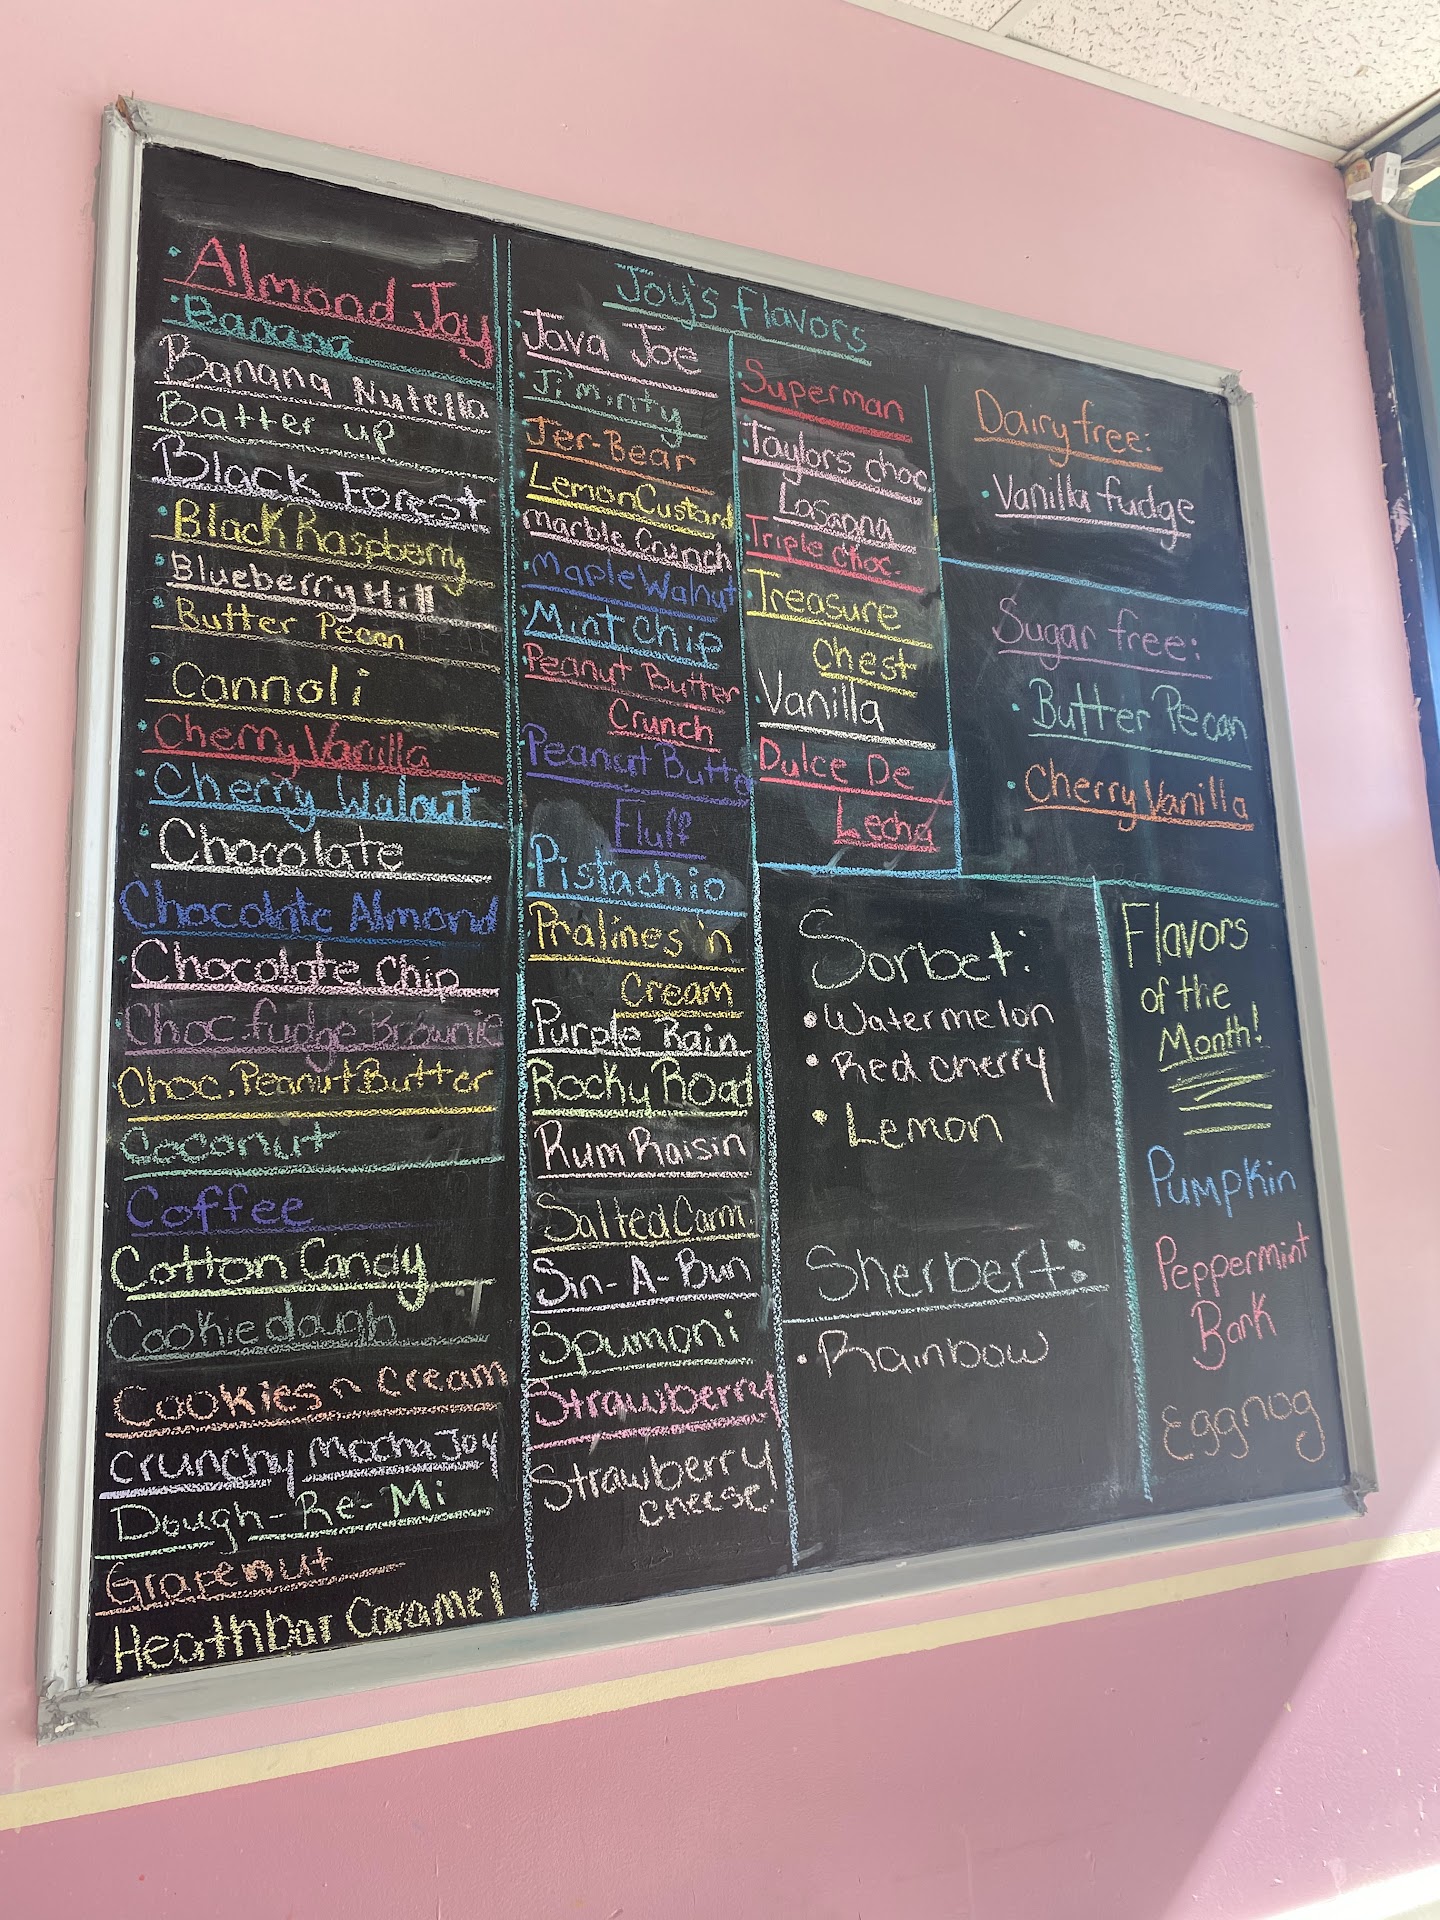 Joy's flavors
Almond Joy
Banana
Banana Nutella
Batter up
Black Forest
Black Raspberry
Blueberry Hill
Butter Pecan
Cannoli
Cherry Vanilla
Cherry Walnut
Chocolate
Chocolate Almond
Chocolate Chip
Choc. fudge Brownie
Choc. Peanut Butter
Coconut
Coffee
Cotton Candy
Cookie dough
Cookies n cream
Crunchy Mocha Joy
Dough-Re-Mi
Grapenut
Heathbar Caramel
Java Joe
Ji'minty
Jer-Bear
Lemon Custard
Marble Crunch
Maple Walnut
Mint Chip
Peanut Butter
Crunch
Peanut Butter
Fluff
Pistachio
Pralines 'n
Cream
Purple Rain
Rocky Road
Rum Raisin
Salted Carm.
Sin-A-Bun
Spumoni
Strawberry
Strawberry
cheese.
Superman
Taylors choc
Lasagna
Triple choc.
Treasure
Chest
Vanilla
Dulce De
Leche
Dairy free:
Vanilla fudge
Sugar free:
Butter Pecan
Cherry Vanilla
Sorbet:
Watermelon
Red cherry
Lemon
Sherbert:
Rainbow
Flavors
of the
Month!
Pumpkin
Peppermint
Bark
Eggnog